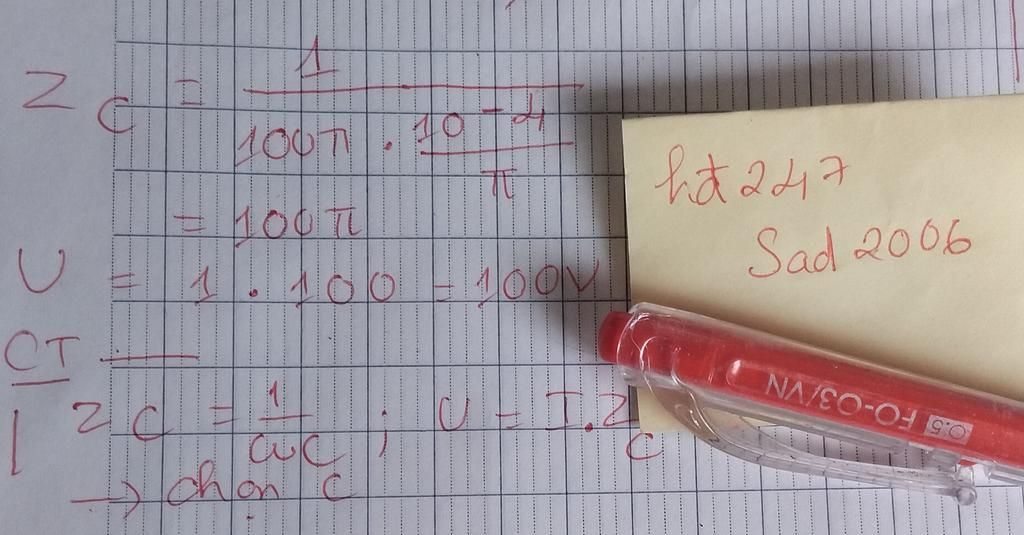 Z_C = 1 / (100π . 10^-4 / π)
= 100π
U = 1 . 100 = 100V
CT
Z C = 1 / ωC ; U = I.Z_C
→ chọn C
hđt 247
Sad 2006
0.5 FO-03/VN